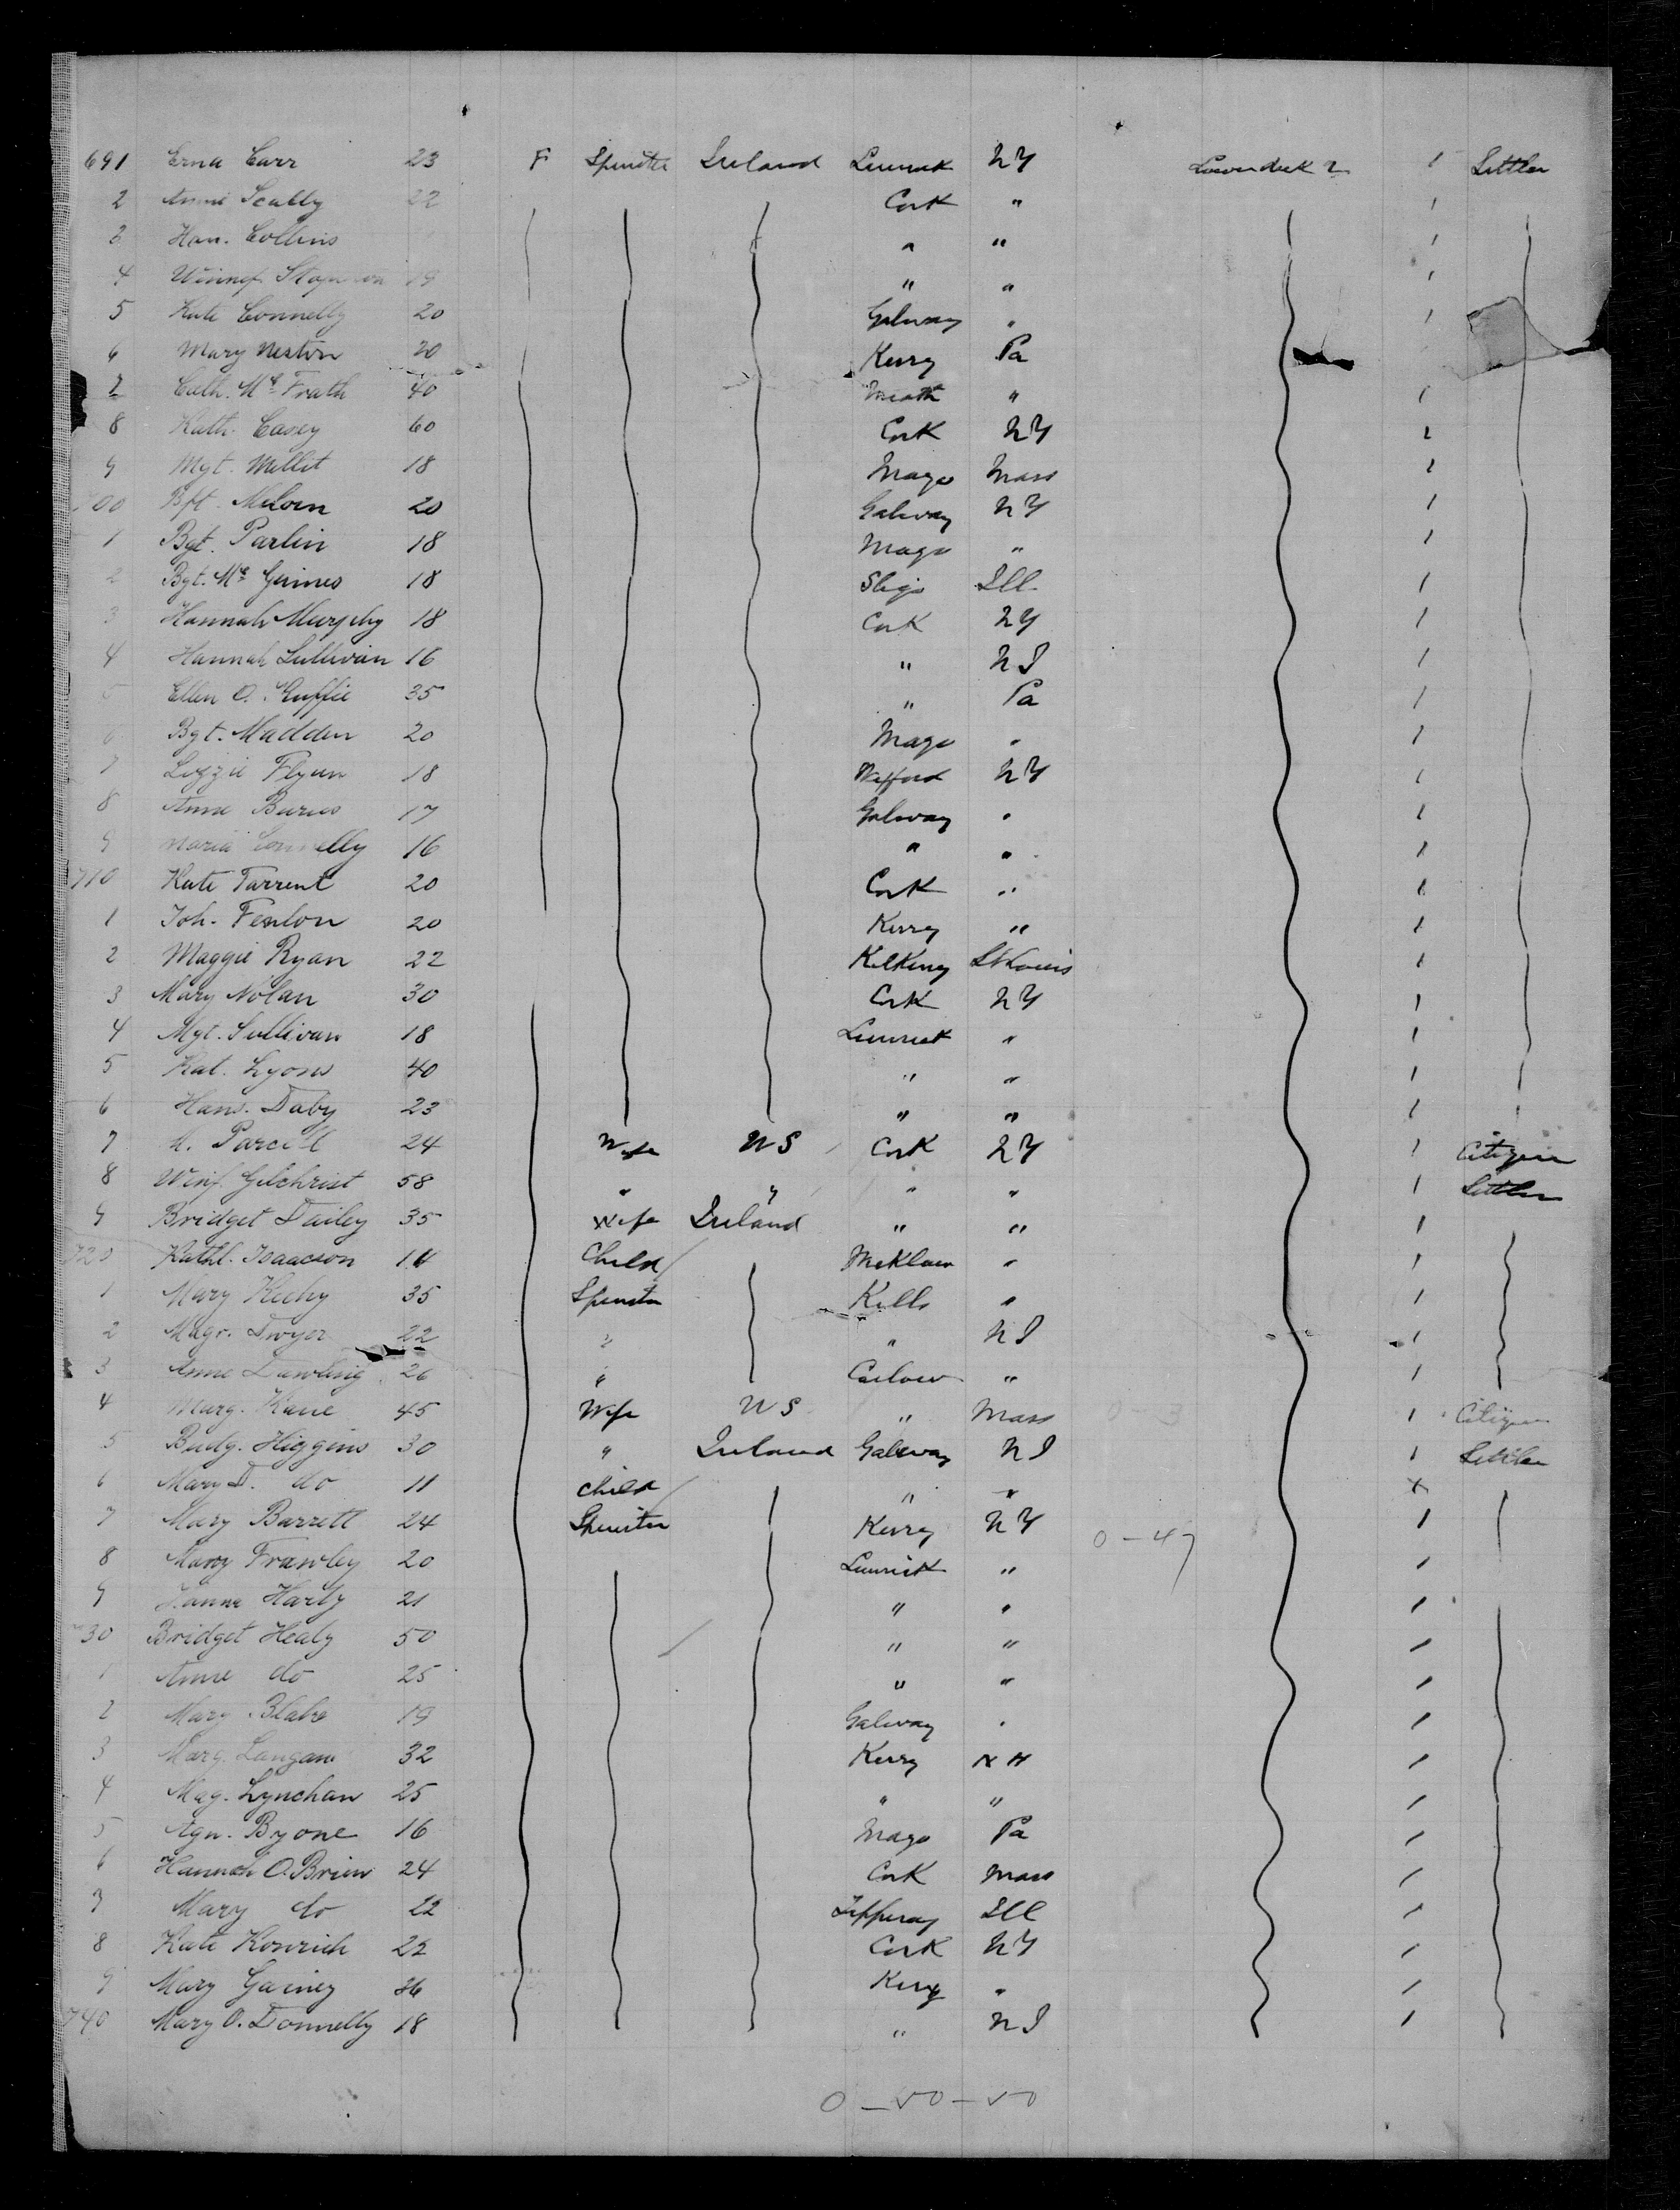 691 Erna Carr 23 F Spinster Ireland Limerick NY Lowerdeck 2 1 Settler
2 Annie Scully 22 Cork " 1
3 Han. Collins " " 1
4 Winnef " " 1
5 Kate Connelly 20 Galway " 1
6 Mary Neston 20 Kerry Pa
7 Cath. Mc Frath 40 Meath " 1
8 Kath. Casey 60 Cork NY 1
9 Mgt. Millit 18 Mayo Mass 1
700 Bgt. Meloin 20 Galway NY 1
1 Bgt. Parlin 18 Mayo " 1
2 Bgt. Mc Guines 18 Sligo Ill 1
3 Hannah Murphy 18 Cork NY 1
4 Hannah Sullivan 16 " NJ 1
5 Ellen O. Guffie 35 " Pa 1
6 Bgt. Madden 20 Mayo " 1
7 Lizzie Flynn 18 Wexford NY 1
8 Anne Buries 17 Galway " 1
9 Maria Connelly 16 " " 1
710 Kate Tarrent 20 Cork " 1
1 Joh. Fenlon 20 Kerry " 1
2 Maggie Ryan 22 Kilkeny St Louis 1
3 Mary Nolan 30 Cork NY 1
4 Mgt. Sullivan 18 Limerick " 1
5 Kat. Lyons 40 " " 1
6 Hans. Daby 23 " " 1
7 Parcell 24 Wife US Cork NY 1 Citizen
8 Winf. Gilchrist 58 " " " " 1 Settler
9 Bridget Dailey 35 Wife Ireland " " 1
720 Kathl. Isaacson 14 Child " 1
1 Mary Keehy 35 Spinster Kells " 1
2 Magr. Dwyer 22 " " NJ 1
3 Anne Dawling 26 " Carlow " 1
4 Marg. Kane 45 Wife US " Mass 0-3 1 Citizen
5 Bridg. Higgins 30 " Ireland Galway NJ 1 Settler
6 Mary D. do 11 Child " " x
7 Mary Barrett 24 Spinster Kerry NY 0-47 1
8 Mary Frawley 20 Limrick " 1
9 Hanna Harty 21 " " 1
730 Bridget Healy 50 " " 1
1 Anne do 25 " " 1
2 Mary Blake 19 Galway " 1
3 Marg. Langan 32 Kerry NH 1
4 Mag. Lynchan 25 " " 1
5 Agn. Byone 16 Mayo Pa 1
6 Hannah O.Brien 24 Cork Mass 1
7 Mary do 22 Tipperay Ill 1
8 Kate Konrich 22 Cork NY 1
9 Mary Gainey 26 Kerry " 1
740 Mary O. Donnelly 18 " NJ 1
0-50-50